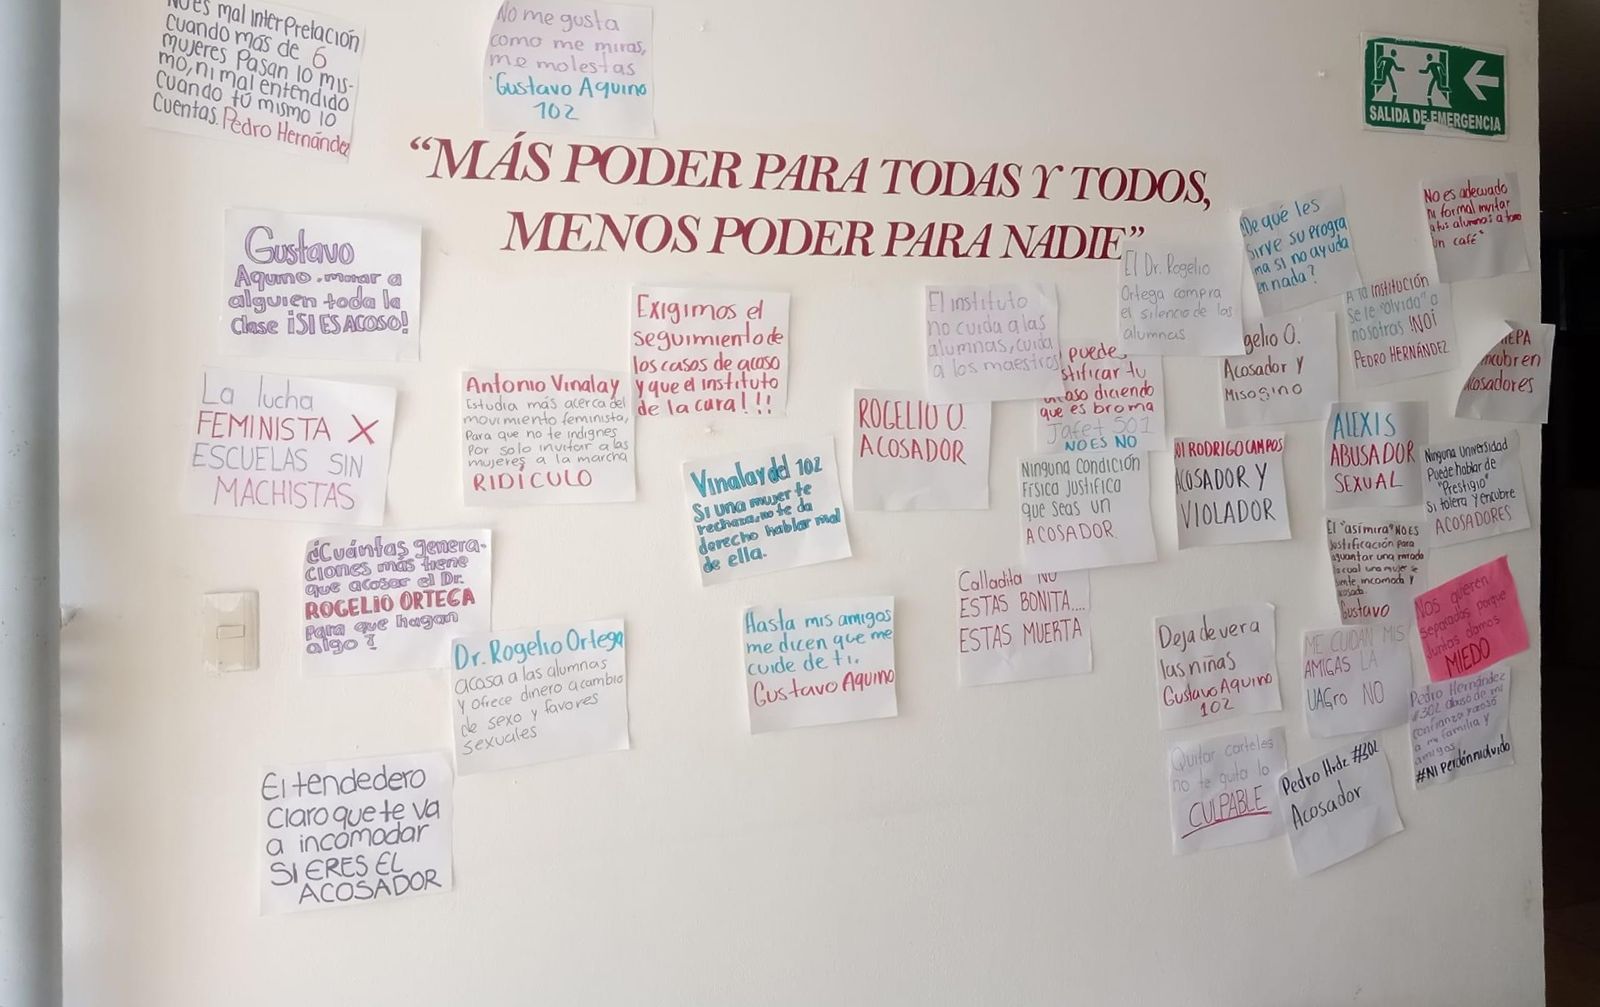 No es mal interpretación
cuando más de 6
mujeres pasan lo mis-
mo, ni mal entendido
cuando tú mismo lo
cuentas. Pedro Hernández
No me gusta
como me miras,
me molestas
Gustavo Aquino
102
SALIDA DE EMERGENCIA
“MÁS PODER PARA TODAS Y TODOS,
MENOS PODER PARA NADIE”
Gustavo
Aquino. mirar a
alguien toda la
clase ¡SI ES ACOSO!
Exigimos el
seguimiento de
los casos de acoso
y que el instituto
de la cara!!!
El instituto
no cuida a las
alumnas, cuida
a los maestros
El Dr. Rogelio
Ortega compra
el silencio de las
alumnas
De qué les
sirve su progra
ma si no ayuda
en nada?
No es adecuado
ni formal invitar
a tus alumnas a tomar
un café"
A la INSTITUCIÓN
se le "olvido" a
nosotras !NO¡
PEDRO HERNÁNDEZ
gelio O.
Acosador y
Misogino
EPA
ncubren
acosadores
La lucha
FEMINISTA X
ESCUELAS SIN
MACHISTAS
Antonio Vinalay
Estudia más acerca del
movimiento feminista,
Para que no te indignes
Por solo invitar a las
mujeres a la marcha
RIDÍCULO
Vinalay del 102
Si una mujer te
rechaza, no te da
derecho hablar mal
de ella.
ROGELIO O.
ACOSADOR
puedes
stificar tu
acoso diciendo
que es broma
Jafet 501
NO ES NO
Ninguna Condición
Física Justifica
que seas un
ACOSADOR.
NI RODRIGO CAMPOS
ACOSADOR Y
VIOLADOR
ALEXIS
ABUSADOR
SEXUAL
Ninguna Universidad
Puede hablar de
"Prestigio"
Si tolera y encubre
ACOSADORES
¿Cuántas genera-
ciones más tiene
que acosar el Dr.
ROGELIO ORTEGA
para que hagan
algo?
Dr. Rogelio Ortega
acosa a las alumnas
y ofrece dinero a cambio
de sexo y favores
sexuales
Hasta mis amigos
me dicen que me
cuide de ti.
Gustavo Aquino
Calladita NO
ESTAS BONITA....
ESTAS MUERTA
El "asi mira" NO ES
Justificación para
aguantar una mirada
la cual una mujer se
siente incomoda y
acosada.
Gustavo
Nos quieren
separadas porque
Juntas damos
MIEDO
Deja de ver a
las niñas
Gustavo Aquino
102
ME CUIDAN MIS
AMIGAS LA
UAGro NO
Pedro Hernández
#302 abuso de mi
confianza
a mi familia y
amigos
#Ni perdón ni olvido
Quitar carteles
no te quita lo
CULPABLE
Pedro Hrdz #302
Acosador
El tendedero
Claro que te va
a incomodar
SI ERES EL
ACOSADOR